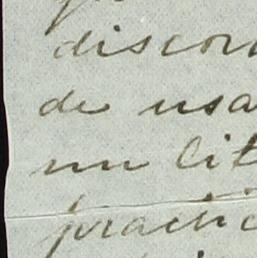 discor
de usa
un lit
practic